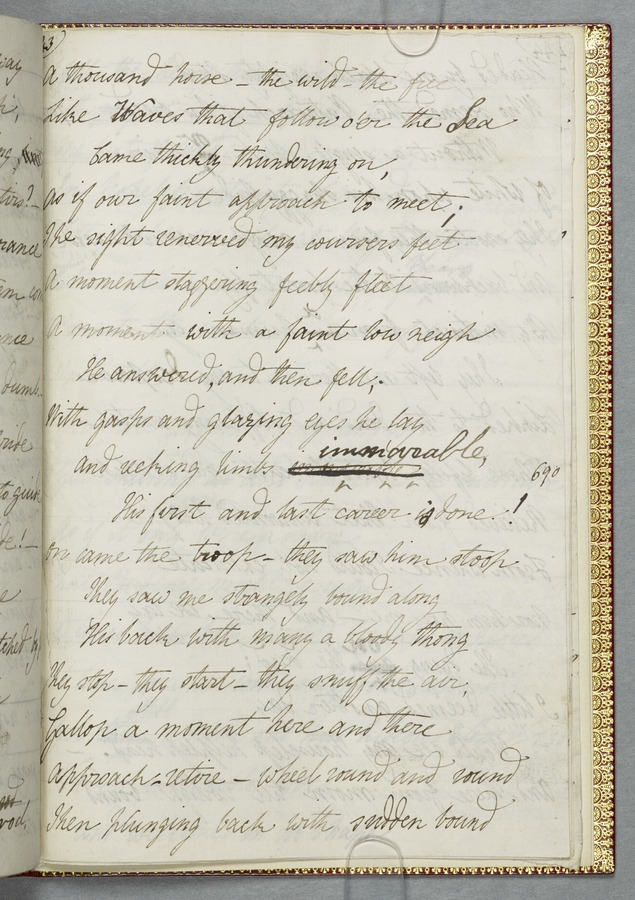 3)
A thousand horse - the wild - the free
Like Waves that follow o'er the Sea
Came thickly thundering on,
As if our faint approach to meet;
The sight renerved my coursers feet
A moment staggering feebly fleet
A moment with a faint low neigh
He answered, and then fell;
With gasps and glazing eyes he lay
immovable,
and reeking limbs
690
His first and last career is done!
On came the troop - they saw him stoop
They saw me strangely bound along
His back with many a bloody thong
They stop - they start - they snuff the air,
Gallop a moment here and there
Approach - retire - wheel round and round
Then plunging back with sudden bound